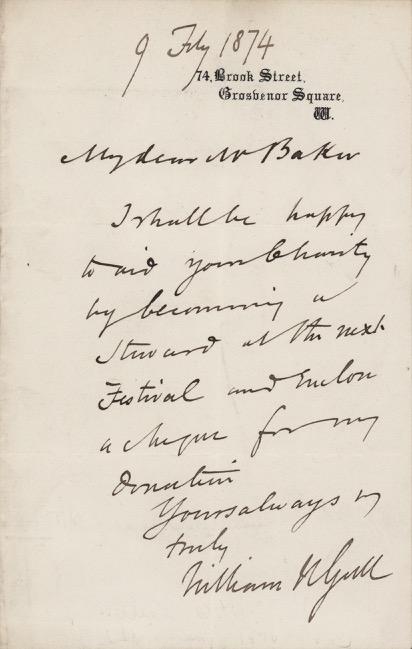 9 Feby 1874
74, Brook Street,
Grosvenor Square,
W.
My dear Mr Baker
I shall be happy
to aid your Charity
by becoming a
Steward at the next
Festival and Enclose
a cheque for my
donation
Yours always vy
truly
William W Gull